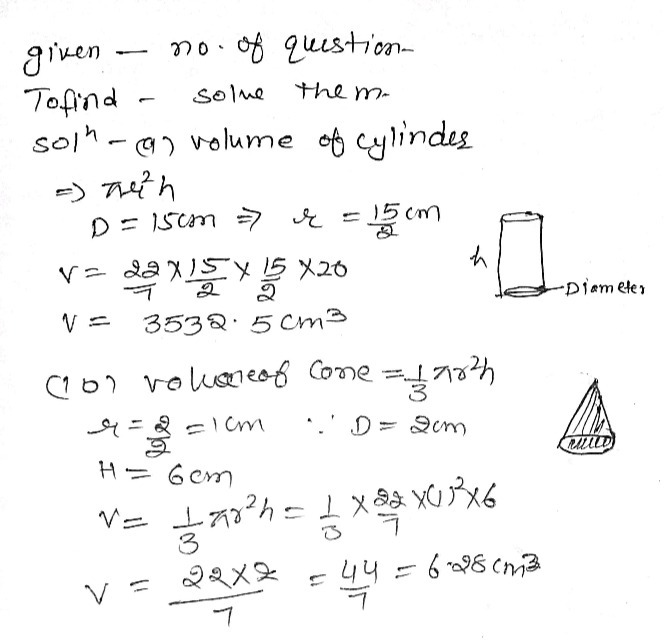 given - no. of question-
Tofind - solve them-
solⁿ - (a) volume of cylinder
=> πr²h
D = 15cm => r = 15/2 cm
V = 22/7 X 15/2 X 15/2 X 20
h
Diameter
V = 3532.5 cm3
(b) volume of Cone = 1/3 πr²h
r = 2/2 = 1cm ∵ D = 2cm
H = 6cm
V = 1/3 πr²h = 1/3 X 22/7 X(1)²X6
V = 22X2/7 = 44/7 = 6.28 cm3